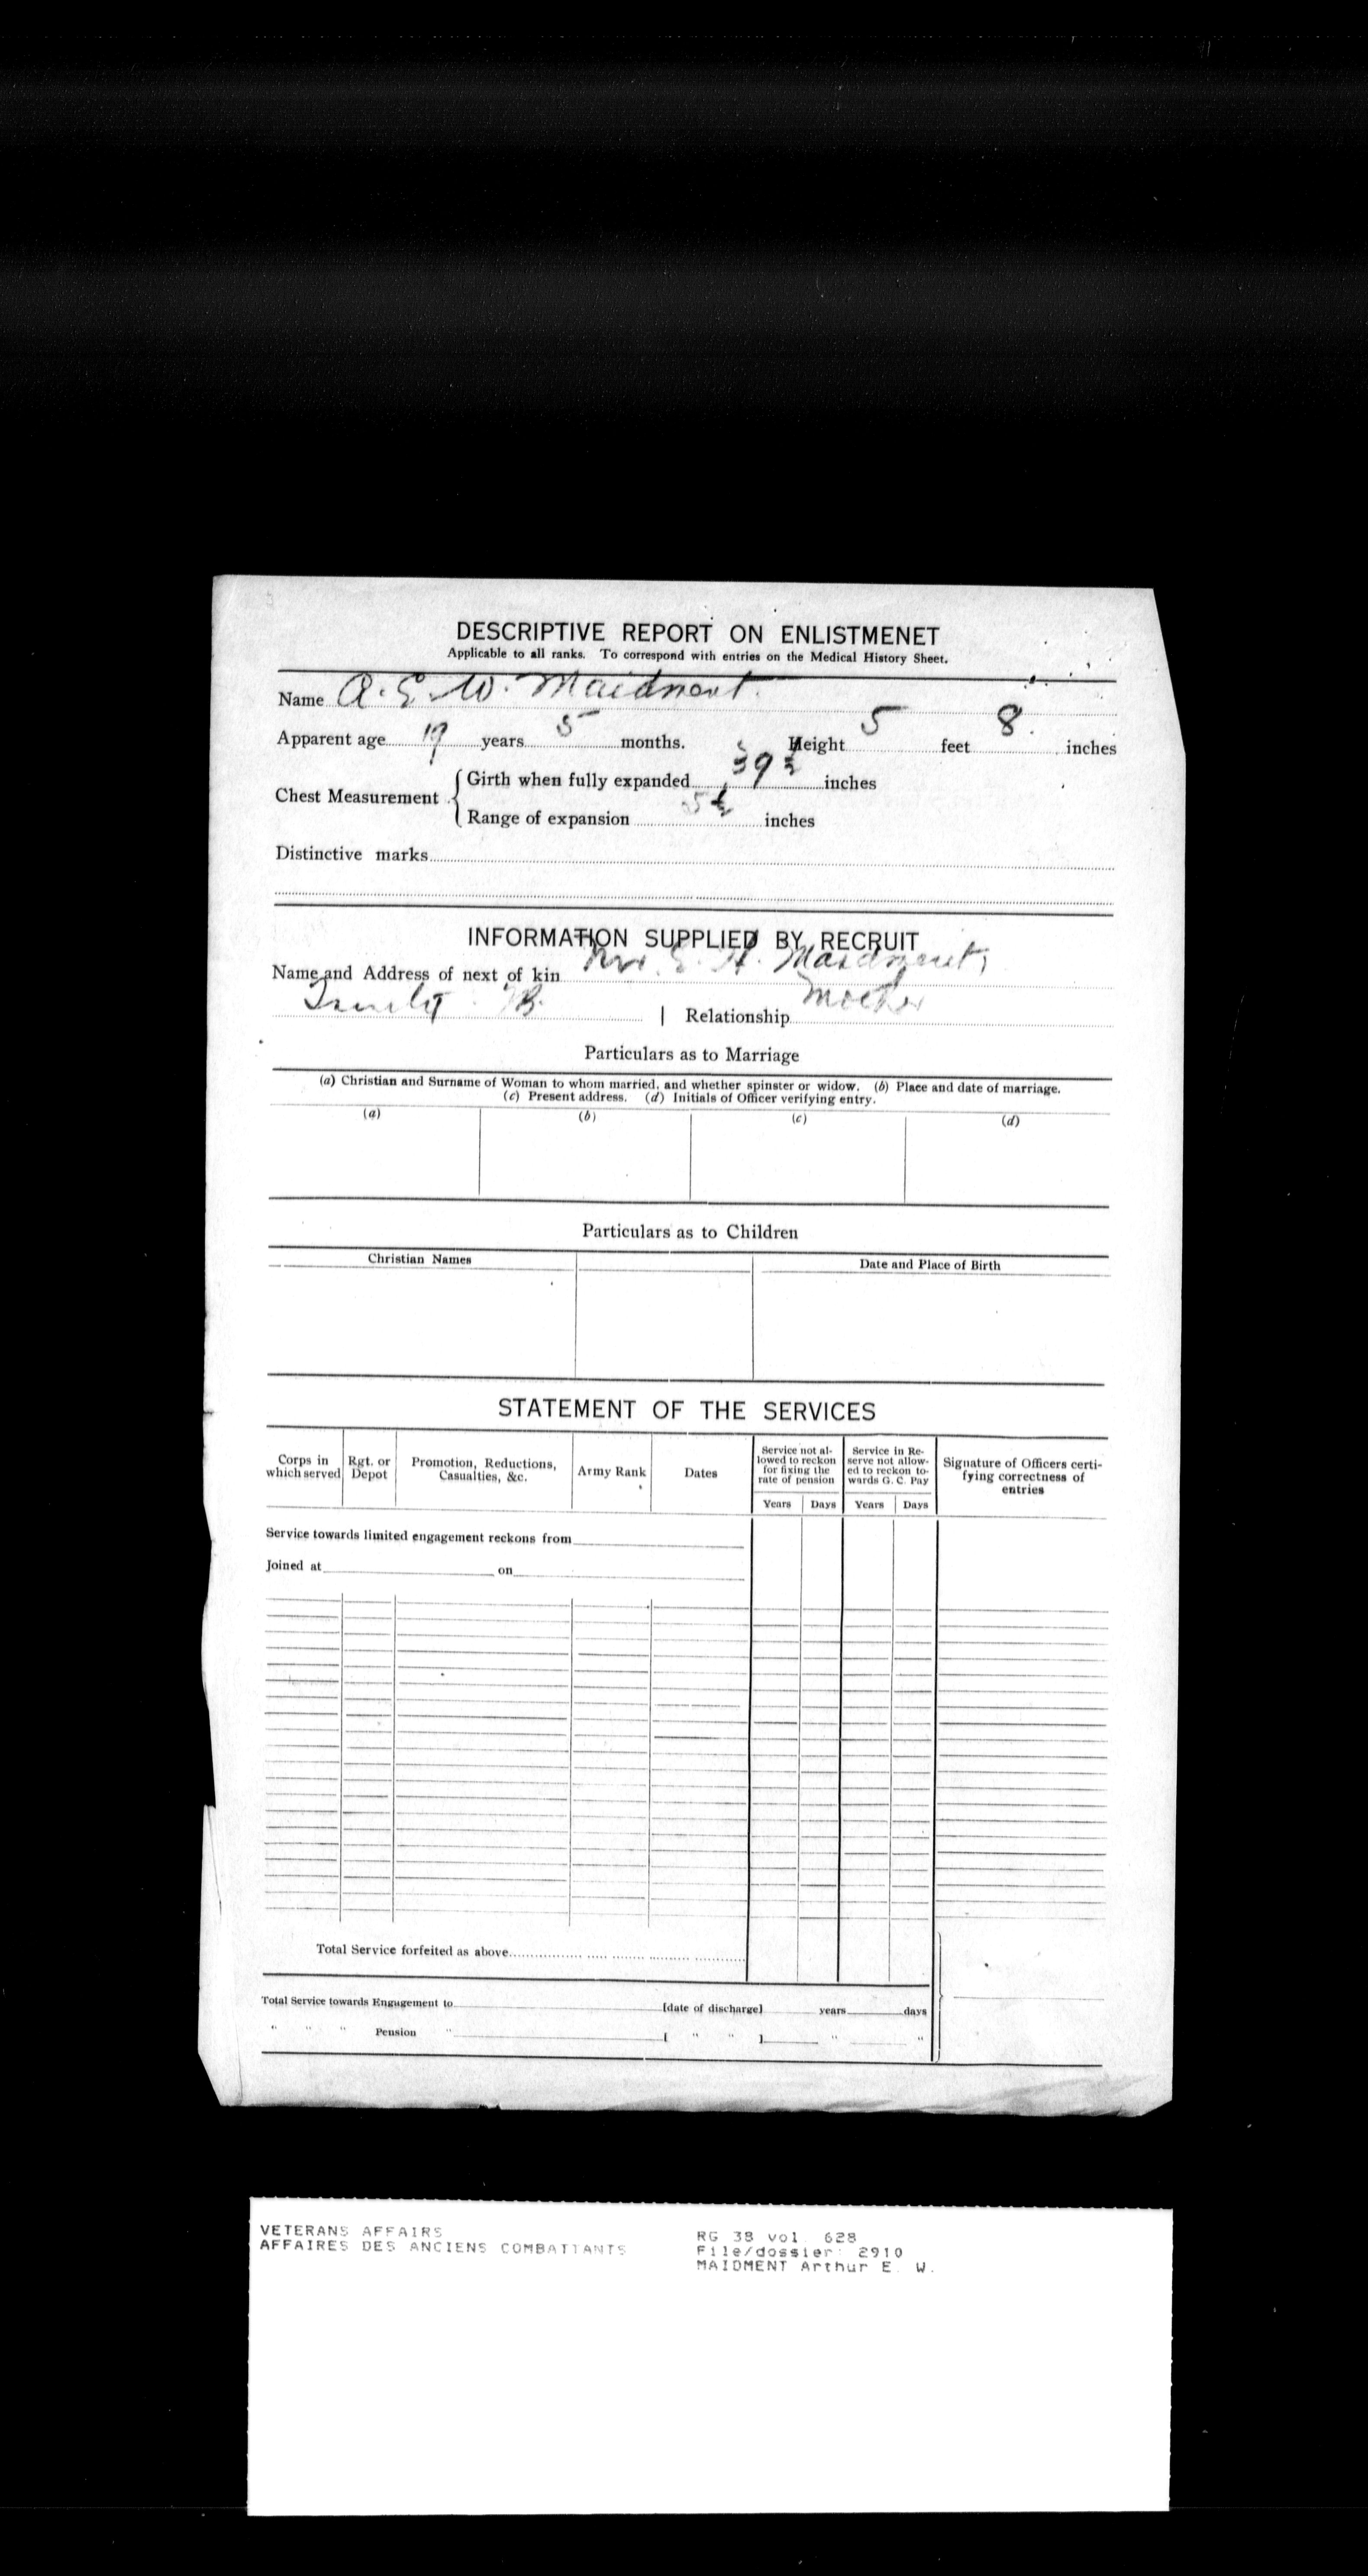 DESCRIPTIVE REPORT ON ENLISTMENET
Applicable to all ranks. To correspond with entries on the Medical History Sheet.
Name A. E. W. Maidment.
Apparent age 19 years 5 months. Height 5 feet 8 inches
Chest Measurement
Girth when fully expanded 39½ inches
Range of expansion 5½ inches
Distinctive marks
INFORMATION SUPPLIED BY RECRUIT
Name and Address of next of kin Mrs. E. H. Maidment,
Trinity B. | Relationship Mother
Particulars as to Marriage
(a) Christian and Surname of Woman to whom married, and whether spinster or widow. (b) Place and date of marriage.
(c) Present address. (d) Initials of Officer verifying entry.
(a) (b) (c) (d)
Particulars as to Children
Christian Names Date and Place of Birth
STATEMENT OF THE SERVICES
Corps in which served
Rgt. or Depot
Promotion, Reductions, Casualties, &c.
Army Rank
Dates
Service not allowed to reckon for fixing the rate of pension
Service in Reserve not allowed to reckon towards G. C. Pay
Signature of Officers certifying correctness of entries
Years Days Years Days
Service towards limited engagement reckons from
Joined at on
Total Service forfeited as above
Total Service towards Engagement to [date of discharge] years days
" " " Pension " [ " " ] " "
VETERANS AFFAIRS
AFFAIRES DES ANCIENS COMBATTANTS
RG 38 vol. 628
File/dossier: 2910
MAIDMENT Arthur E. W.